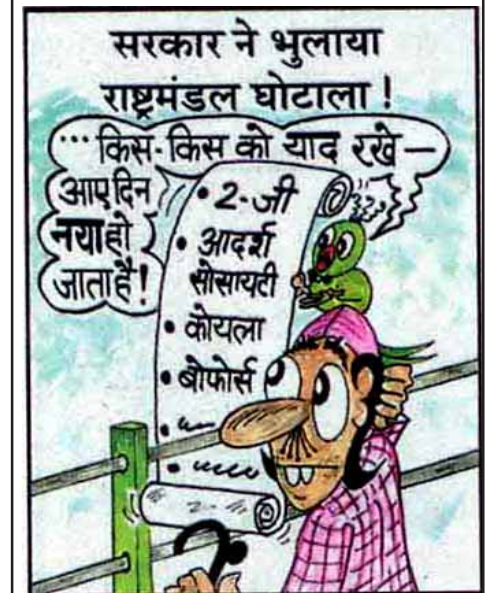 सरकार ने भुलाया
राष्ट्रमंडल घोटाला !
... किस-किस को याद रखे —
आए दिन
नया हो
जाता है !
• 2-जी
• आदर्श
सोसायटी
• कोयला
• बोफोर्स